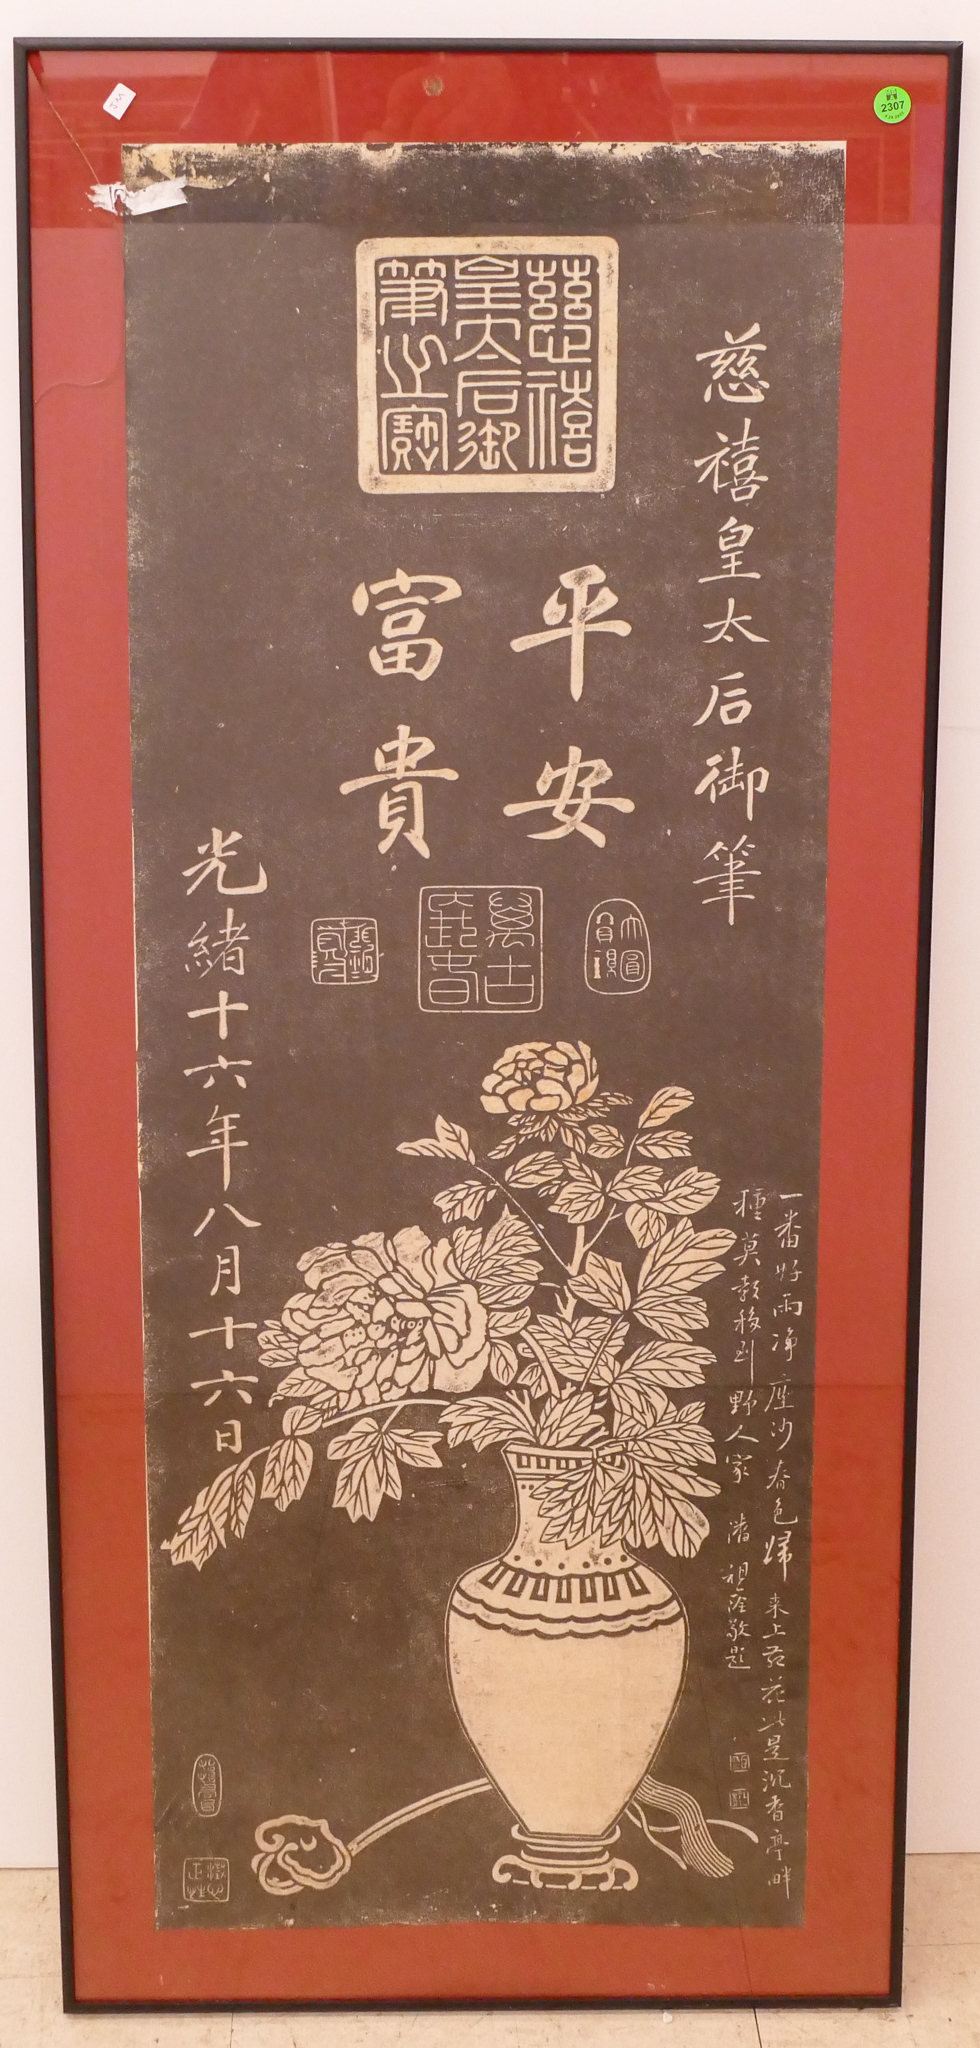 慈禧皇太后御筆
慈禧
皇太后御
筆之寶
平安
富貴
大圓寶鏡
萬古
長春
光緒十六年八月十六日
一番好雨淨塵沙春色歸來上苑花此是沉香亭畔
種莫教移到野人家 潘祖蔭敬題
2307